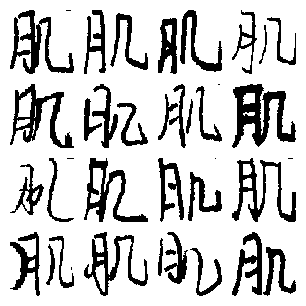 肌肌肌肌
肌肌肌肌
肌肌肌肌
肌肌肌肌